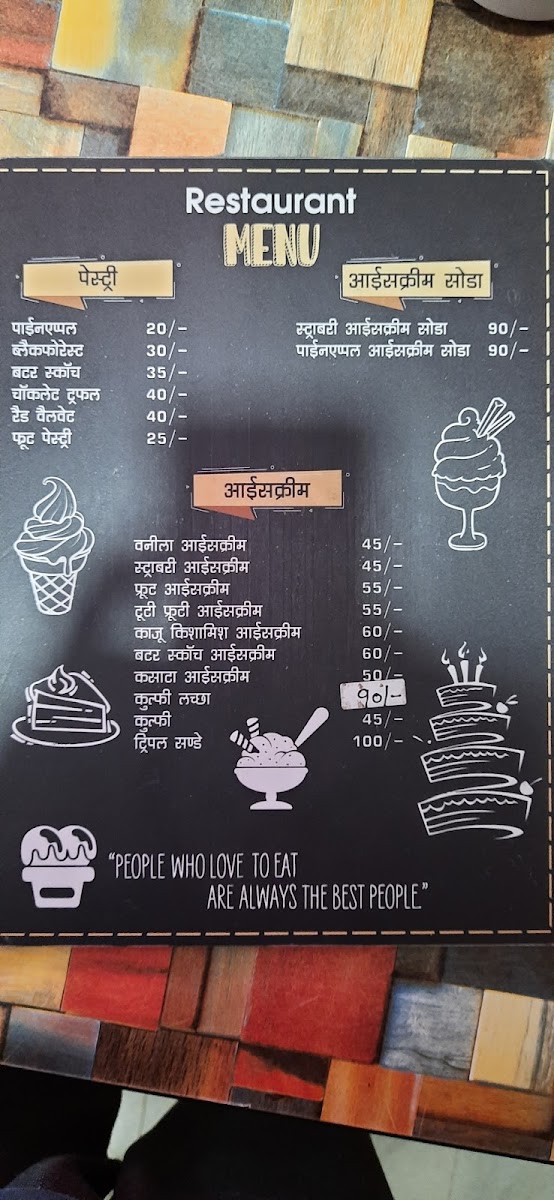 Restaurant
MENU
पेस्ट्री
पाईनएप्पल 20/-
ब्लैकफोरेस्ट 30/-
बटर स्कॉच 35/-
चॉकलेट ट्रफल 40/-
रैड वैलवेट 40/-
फ्रूट पेस्ट्री 25/-
आईसक्रीम सोडा
स्ट्राबरी आईसक्रीम सोडा 90/-
पाईनएप्पल आईसक्रीम सोडा 90/-
आईसक्रीम
वनीला आईसक्रीम 45/-
स्ट्राबरी आईसक्रीम 45/-
फ्रूट आईसक्रीम 55/-
टूटी फ्रूटी आईसक्रीम 55/-
काजू किशामिश आईसक्रीम 60/-
बटर स्कॉच आईसक्रीम 60/-
कसाटा आईसक्रीम 50/-
कुल्फी लच्छा 90/-
कुल्फी 45/-
ट्रिपल सण्डे 100/-
“PEOPLE WHO LOVE TO EAT
ARE ALWAYS THE BEST PEOPLE.”